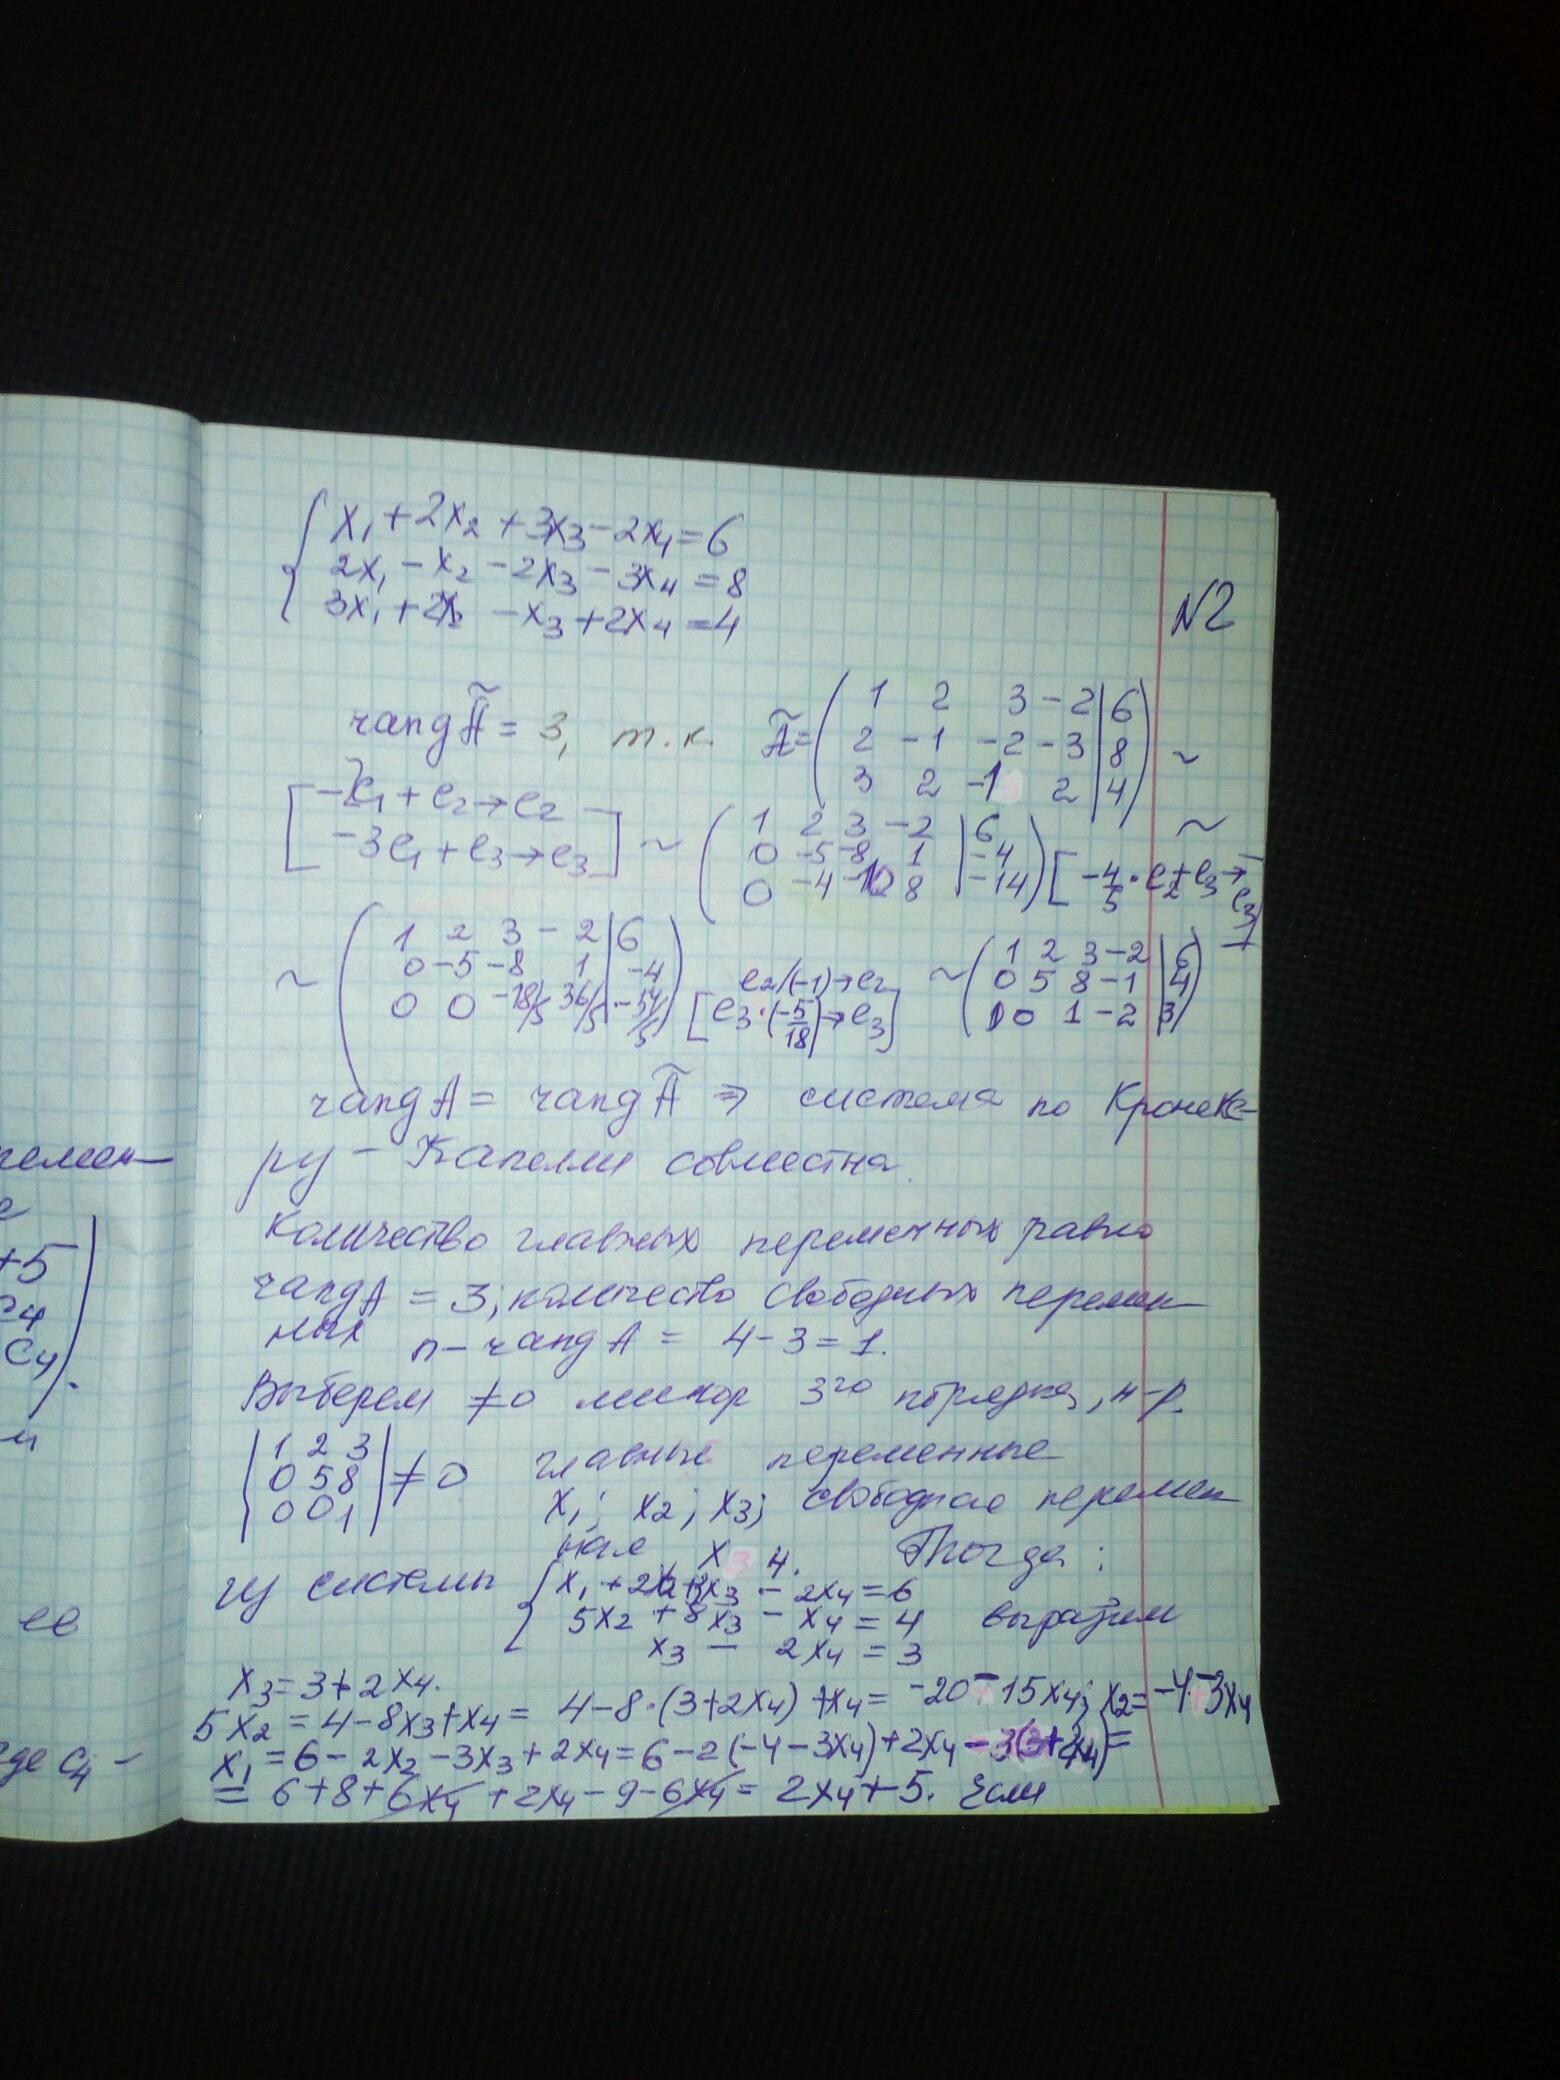 x₁ + 2x₂ + 3x₃ - 2x₄ = 6
2x₁ - x₂ - 2x₃ - 3x₄ = 8
3x₁ + 2x₂ - x₃ + 2x₄ = 4
N2
rang Ã = 3, т.к. Ã = ( 1 2 3 -2 | 6
2 -1 -2 -3 | 8
3 2 -1 2 | 4 ) ~
[ -2e₁ + e₂ → e₂
-3e₁ + e₃ → e₃ ] ~ ( 1 2 3 -2 | 6
0 -5 -8 1 | -4
0 -4 -10 8 | -14 ) [ -4/5 · e₂ + e₃ → e₃ ] ~
~ ( 1 2 3 -2 | 6
0 -5 -8 1 | -4
0 0 -18/5 36/5 | -54/5 ) [ e₂/(-1) → e₂
e₃ · (-5/18) → e₃ ] ~ ( 1 2 3 -2 | 6
0 5 8 -1 | 4
0 0 1 -2 | 3 )
rang A = rang Ã ⇒ система по Кронеке-
ру - Капелли совместна.
Количество главных переменных равно
rang A = 3; количество свободных перемен-
ных n - rang A = 4 - 3 = 1.
Выберем ≠0 минор 3го порядка, н-р.
| 1 2 3
0 5 8
0 0 1 | ≠ 0 главные переменные
x₁; x₂; x₃; свободная перемен-
ная x 4. Тогда:
из системы { x₁ + 2x₂ + 3x₃ - 2x₄ = 6
5x₂ + 8x₃ - x₄ = 4 выразим
x₃ - 2x₄ = 3
x₃ = 3 + 2x₄.
5x₂ = 4 - 8x₃ + x₄ = 4 - 8·(3 + 2x₄) + x₄ = -20 - 15x₄; x₂ = -4 - 3x₄
x₁ = 6 - 2x₂ - 3x₃ + 2x₄ = 6 - 2(-4 - 3x₄) + 2x₄ - 3(3 + 2x₄) =
= 6 + 8 + 6x₄ + 2x₄ - 9 - 6x₄ = 2x₄ + 5. Если
ремен-
+5
c₄
c₄
ее
где c₄ -